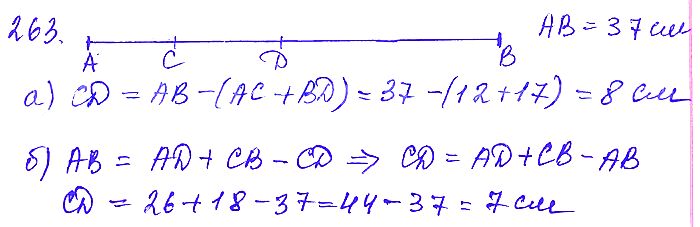 263. AB = 37 см
A C D B
а) CD = AB − (AC + BD) = 37 − (12 + 17) = 8 см
б) AB = AD + CB − CD ⇒ CD = AD + CB − AB
CD = 26 + 18 − 37 = 44 − 37 = 7 см